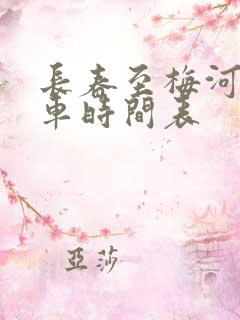 長春至梅河
車時間表
亞莎